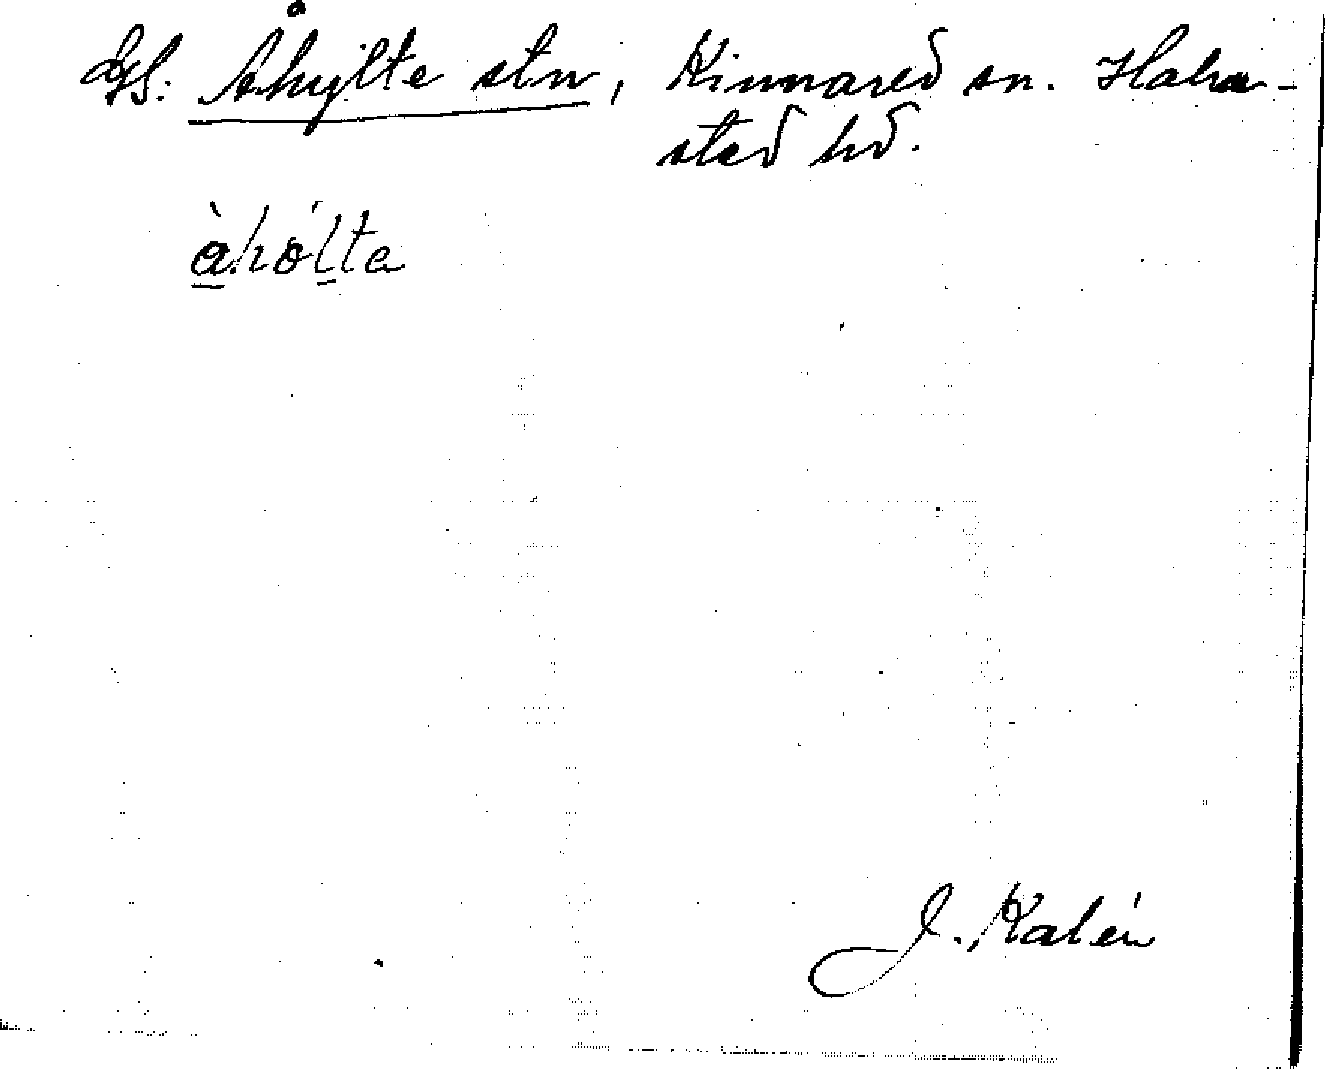 Gs: Åhylte stn, Kinnared sn. Halm-
stad hd.
àhólta
J. Kalén